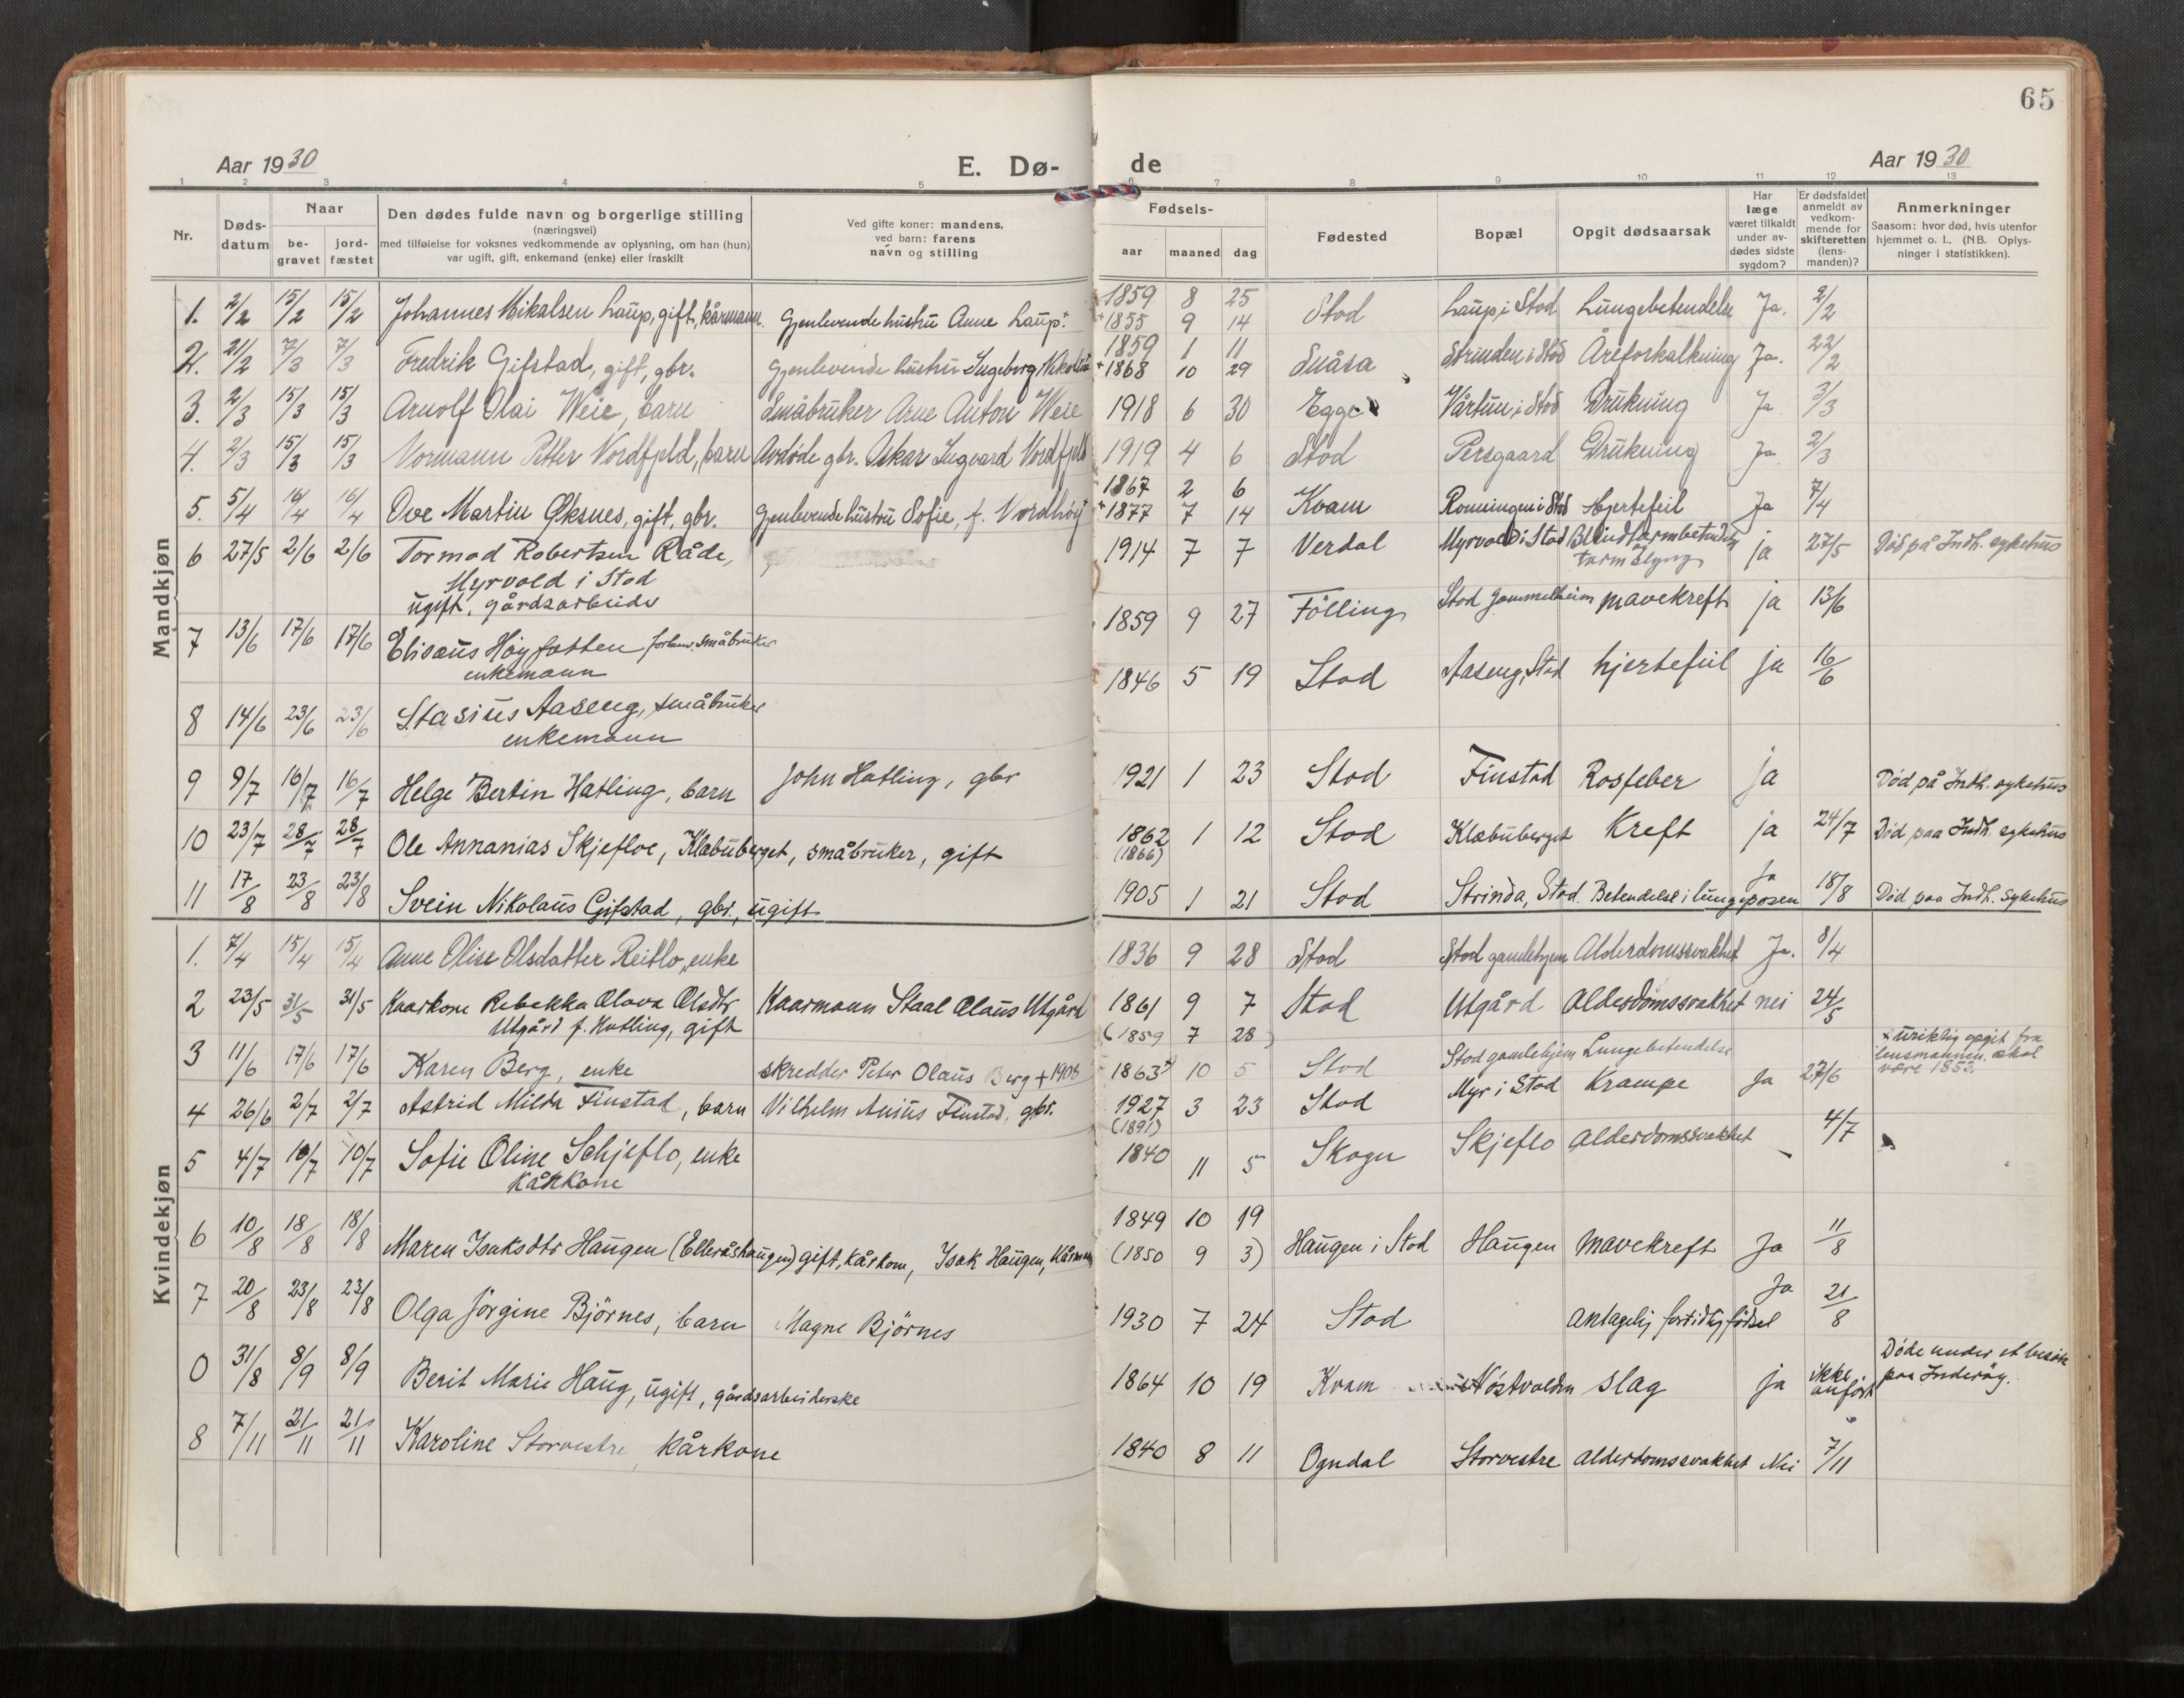 65
Aar 1930
E. Dø-
de
Aar 1930
1 2 3 4 5 6 7 8 9 10 11 12 13
Nr.
Døds-
datum
Naar
be-
gravet
jord-
fæstet
Den dødes fulde navn og borgerlige stilling
(næringsvei)
med tilføielse for voksnes vedkommende av oplysning, om han (hun)
var ugift, gift, enkemand (enke) eller fraskilt
Ved gifte koner: mandens,
ved barn: farens
navn og stilling
Fødsels-
aar maaned dag
Fødested
Bopæl
Opgit dødsaarsak
Har
læge
været tilkaldt
under av-
dødes sidste
sygdom?
Er dødsfaldet
anmeldt av
vedkom-
mende for
skifteretten
(lens-
manden)?
Anmerkninger
Saasom: hvor død, hvis utenfor
hjemmet o. l., (NB. Oplys-
ninger i statistikken).
Mandkjøn
1. 2/2 15/2 15/2 Johannes Mikalsen Laup, gift, kårmann. Gjenlevende hustru Anne Laup+. 1859 8 25 Stod Laup i Stod Lungebetendelse Ja. 2/2
+1855 9 14
2. 21/2 7/3 7/3 Fredrik Gifstad, gift, gbr. Gjenlevende hustru Ingeborg Nikoline 1859 1 11 Snåsa Strinden i Stod Åreforkalkning Ja. 22/2
+1868 10 29
3. 2/3 15/3 15/3 Arnolf Olai Weie, barn Småbruker Arne Anton Weie 1918 6 30 Egge Vårtun i Stod Drukning Ja 3/3
4. 2/3 15/3 15/3 Normann Petter Nordfjeld, barn Avdøde gbr. Oskar Ingvard Nordfjeld 1919 4 6 Stod Persgaard Drukning Ja 2/3
5. 5/4 16/4 16/4 Ove Martin Øksnes, gift, gbr. Gjenlevende hustru Sofie, f. Nordhöy+ 1867 2 6 Kvam Ronningen i Stod Hjertefeil Ja 7/4
+1877 7 14
6 27/5 2/6 2/6 Tormod Robertsen Råde, 1914 7 7 Verdal Myrvold i Stod Blindtarmbetendelse ja 27/5 Død på Indh. sykehus
Myrvold i Stod
tarmslyng
ugift, gårdsarbeider
7 13/6 17/6 17/6 Elisæus Høyfotten forhenv. småbruker 1859 9 27 Fölling Stod gammelheim mavekreft ja 13/6
enkemann
8 14/6 23/6 23/6 Stasius Aaseng, småbruker 1846 5 19 Stod Aaseng, Stod hjertefeil ja 16/6
enkemann
9 9/7 16/7 16/7 Helge Bertin Hatling, barn John Hatling, gbr 1921 1 23 Stod Finstad Rosfeber ja Død på Indh. sykehus
10 23/7 28/7 28/7 Ole Annanias Skjefloe, Klæbuberget, småbruker, gift 1862 1 12 Stod Klæbuberget Kreft ja 24/7 Død paa Indh. sykehus
(1866)
11 17/8 23/8 23/8 Svein Nikolaus Gifstad, gbr., ugift 1905 1 21 Stod Strinda, Stod. Betendelse i lungeposen Ja 18/8 Død paa Indh. sykehus
Kvindekjøn
1. 7/4 15/4 15/4 Anne Olise Olsdatter Reitlo, enke 1836 9 28 Stod Stod gamlehjem Alderdomssvakhet Ja. 8/4
2 23/5 31/5 31/5 Kaarkone Rebekka Olava Olsdtr Kaarmann Staal Olaus Utgård 1861 9 7 Stod Utgård Alderdomssvakhet nei 24/5
Utgård f. Hatling, gift
(1859 7 28)
3 11/6 17/6 17/6 Karen Berg, enke skredder Peter Olaus Berg +1906 1863+) 10 5 Stod Stod gamlehjem Lungebetendelse
x uriktig opgit fra
lensmannen. skal
være 1853.
4 26/6 2/7 2/7 Astrid Milda Finstad, barn Vilhelm Anius Finstad, gbr. 1927 3 23 Stod Myr i Stod Krampe Ja 27/6
(1891)
5 4/7 10/7 10/7 Sofie Oline Schjeflo, enke 1840 11 5 Skogn Skjeflo Alderdomssvakhet 4/7
Kårkone
6 10/8 18/8 18/8 Maren Isaksdtr Haugen (Elleråshaugen) gift, kårkom, Isak Haugen, kårmann 1849 10 19 Haugen i Stod Haugen Mavekreft Ja 11/8
(1850 9 3)
7 20/8 23/8 23/8 Olga Jörgine Björnes, barn Magne Björnes 1930 7 24 Stod Antagelig fortidlig födsel Ja 21/8
0 31/8 8/9 8/9 Berit Marie Haug, ugift, gårdsarbeiderske 1864 10 19 Kvam Höstvolden slag ja ikke anført Døde under et besøk
paa Inderöy.
8 7/11 21/11 21/11 Karoline Storvestre, kårkone 1840 8 11 Ogndal Storvestre Alderdomssvakhet Nei 7/11